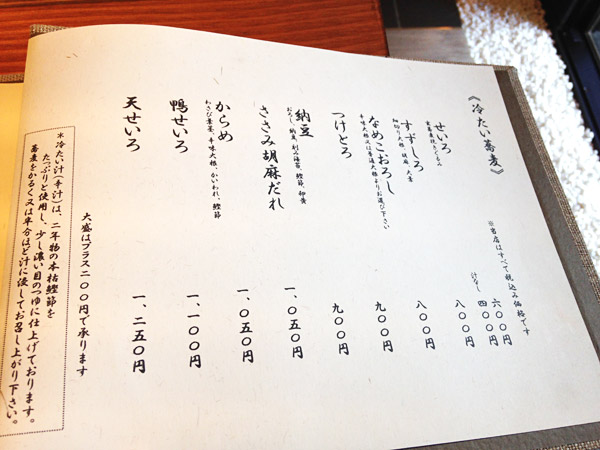 《冷たい蕎麦》
※当店はすべて税込み価格です
せいろ
六〇〇円
けなし 四〇〇円
八〇〇円
すずしろ
細切り大根、胡麻、大葉
八〇〇円
なめこおろし
辛味大根又は普通大根よりお選び下さい
九〇〇円
つけとろ
九〇〇円
納豆
おろし、納豆、刻み海苔、鰹節、卵黄
一、〇五〇円
ささみ胡麻だれ
一、〇五〇円
からめ
わさび葉茎、辛味大根、かいわれ、鰹節
一、一〇〇円
鴨せいろ
天せいろ
一、二五〇円
大盛はプラス二〇〇円で承ります
＊冷たい汁(辛汁)は、二年物の本枯鰹節を
たっぷりと使用し、少し濃い目のつゆに仕上げております。
蕎麦をかるく、又は半分ほど汁に浸してお召し上がり下さい。